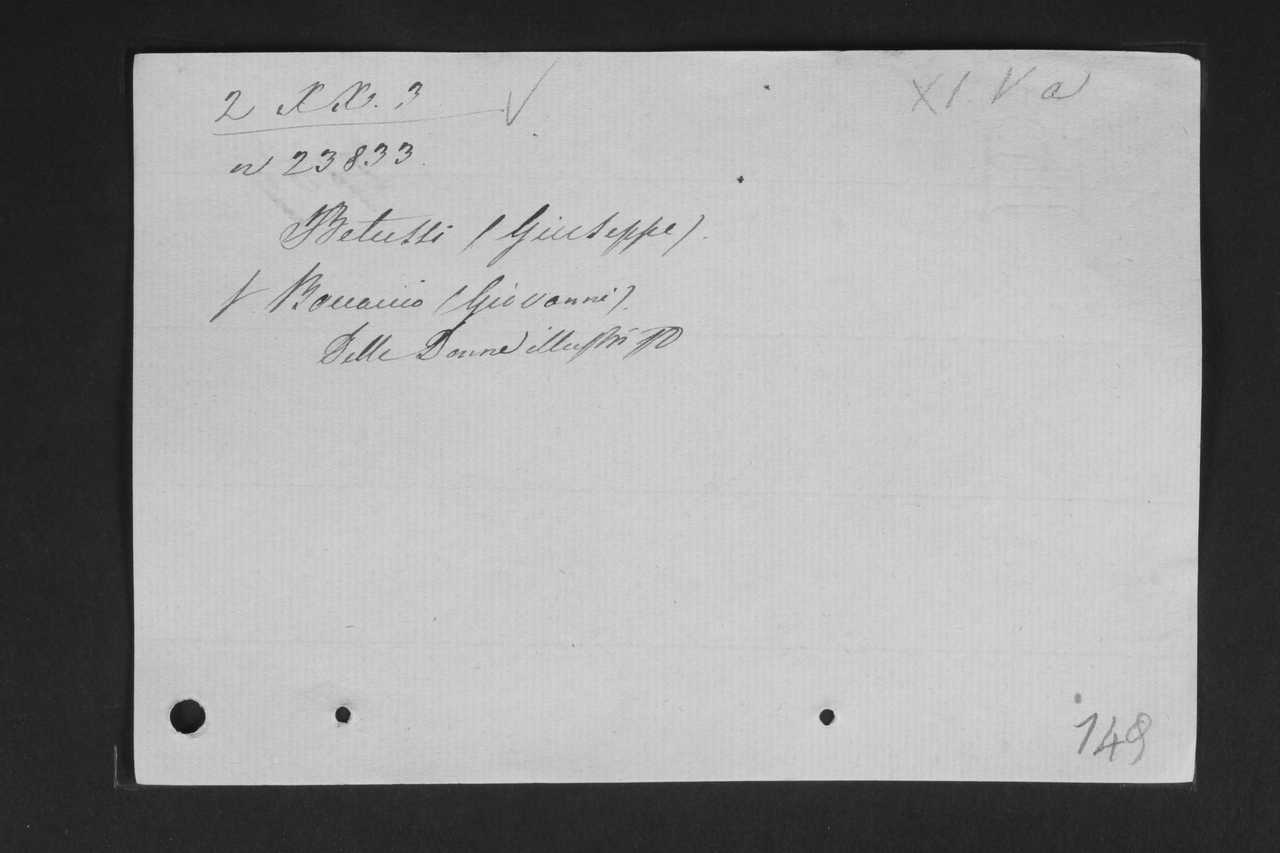 2 XX. 3 √
XI V a
n 23833.
Betussi (Giuseppe).
V Boccaccio (Giovanni).
Delle Donne illustri
149